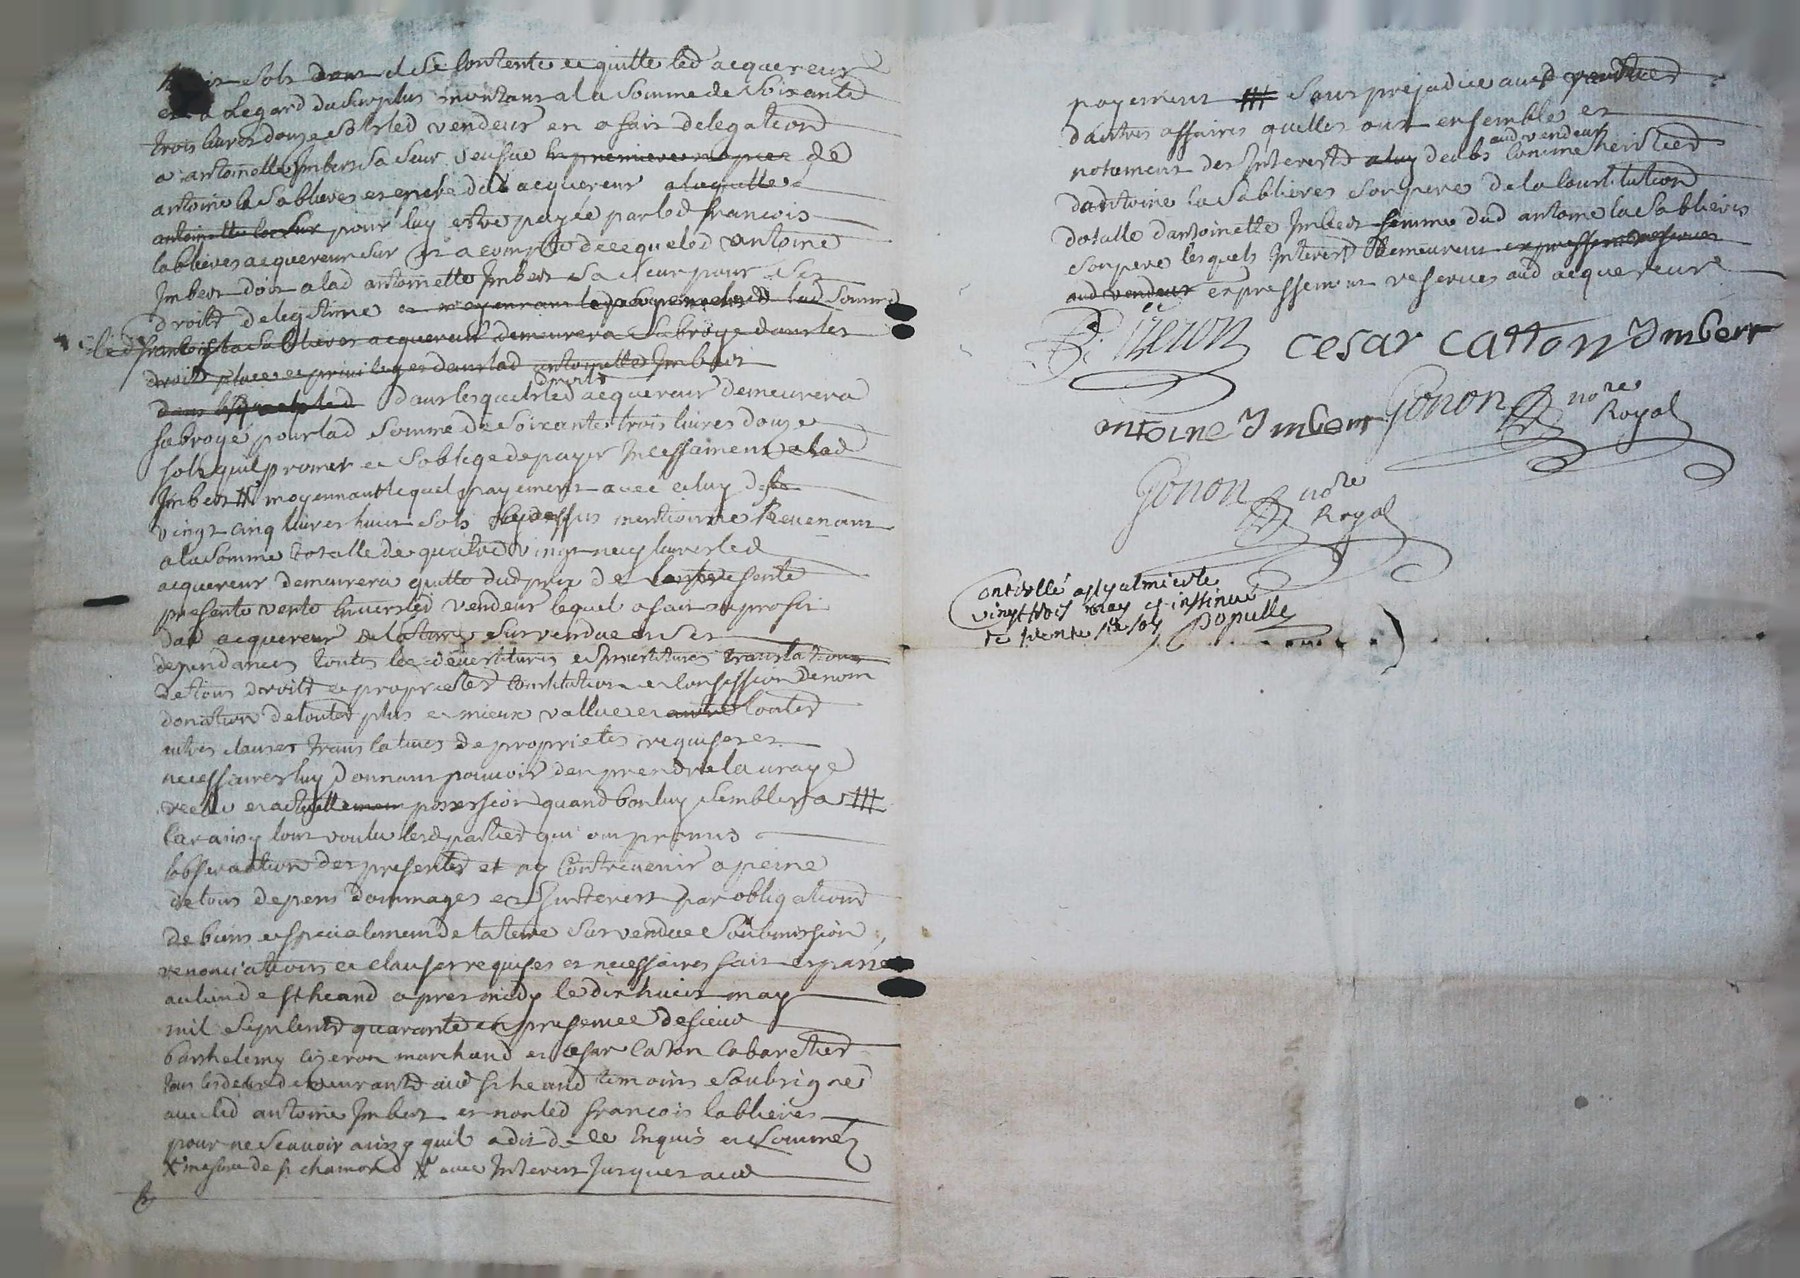 huit sols dont il se contente et quitte led acquereur
et a legard du surplus montant a la somme de soixante
trois livres douze sols led vendeur en a fait delegation
a antoinette Imbert sa seur veufve de
antoine la Sablieres et mere dud acquereur a laquelle
antoinette pour luy estre payée par led françois
lablieres acquereur sur et a compte de ce que led antoine
Imbert doit a lad antoinette Imbert sa seur pour ses
droits de legitime et moyennant le payement de lad somme
led francois la Sablieres acquereur demeurera subrogé dans les
droits places et privileges de lad antoinette Imbert
dans lesquels led dans lesquels droits led acquereur demeurera
subrogé pour lad somme de soixante trois livres douze
sols quil promet et soblige de payer incessament a lad
Imbert # moyennant lequel payement avec celuy de
vingt cinq livres huit sols cy dessus mentionné revenant
a la somme totalle de quatre vingt neuf livres led
acquereur demeurera quitte dud prix de la presente
presente vente envers led vendeur lequel a fait au profit
dud acquereur de la terre survendue et ses
dependances toutes les devestitures et investitures translations
de tous droits et proprietes constitution et confession de nom
donation de toutes plus et mieux vallue et toutes
autres clauses translatives de proprietes requises et
necessaires luy donnant pouvoir den prendre la vraye
reelle et actuelle possession quand bon luy semblera #
car ainsy lont voulu lesd parties qui ont promis
lobservation des presentes et ny contrevenir a peine
de tous depens dommages et Interest par obligations
de biens et specialement de la terre survendue soubmission
renonciations et clauses requises et necessaires fait et passé
au lieu de St heand apres midy le dix huict may
mil sept cents quarante en presence de sieur
barthelemy ciseron marchand et cesar caton cabaretier
tous les deux demeurants aud St heand temoins soubsignes
avec led antoine Imbert et non led françois lablieres
pour ne scavoir ainsy quil a dit de ce Enquis et sommé
X mesure de St chamond X avec Interest jusques aud
payement # sans prejudice aud parties
dautres affaires quelles ont ensemble et
notament des Interests deubs aud vendeur comme heritier
dantoine la Sablieres son pere de la constitution
dotalle dantoinette Imbert femme dud antoine la Sablieres
son pere lesquels Interest demeurent expressement reserves
aud vendeur expressement reserves aud acquereur
B. Ciseron cesar catton Imbert
antoine Imbert Gonon nore Royal
Gonon nore Royal
Controllé a St galmier le
vingt trois may et insinué
Populle